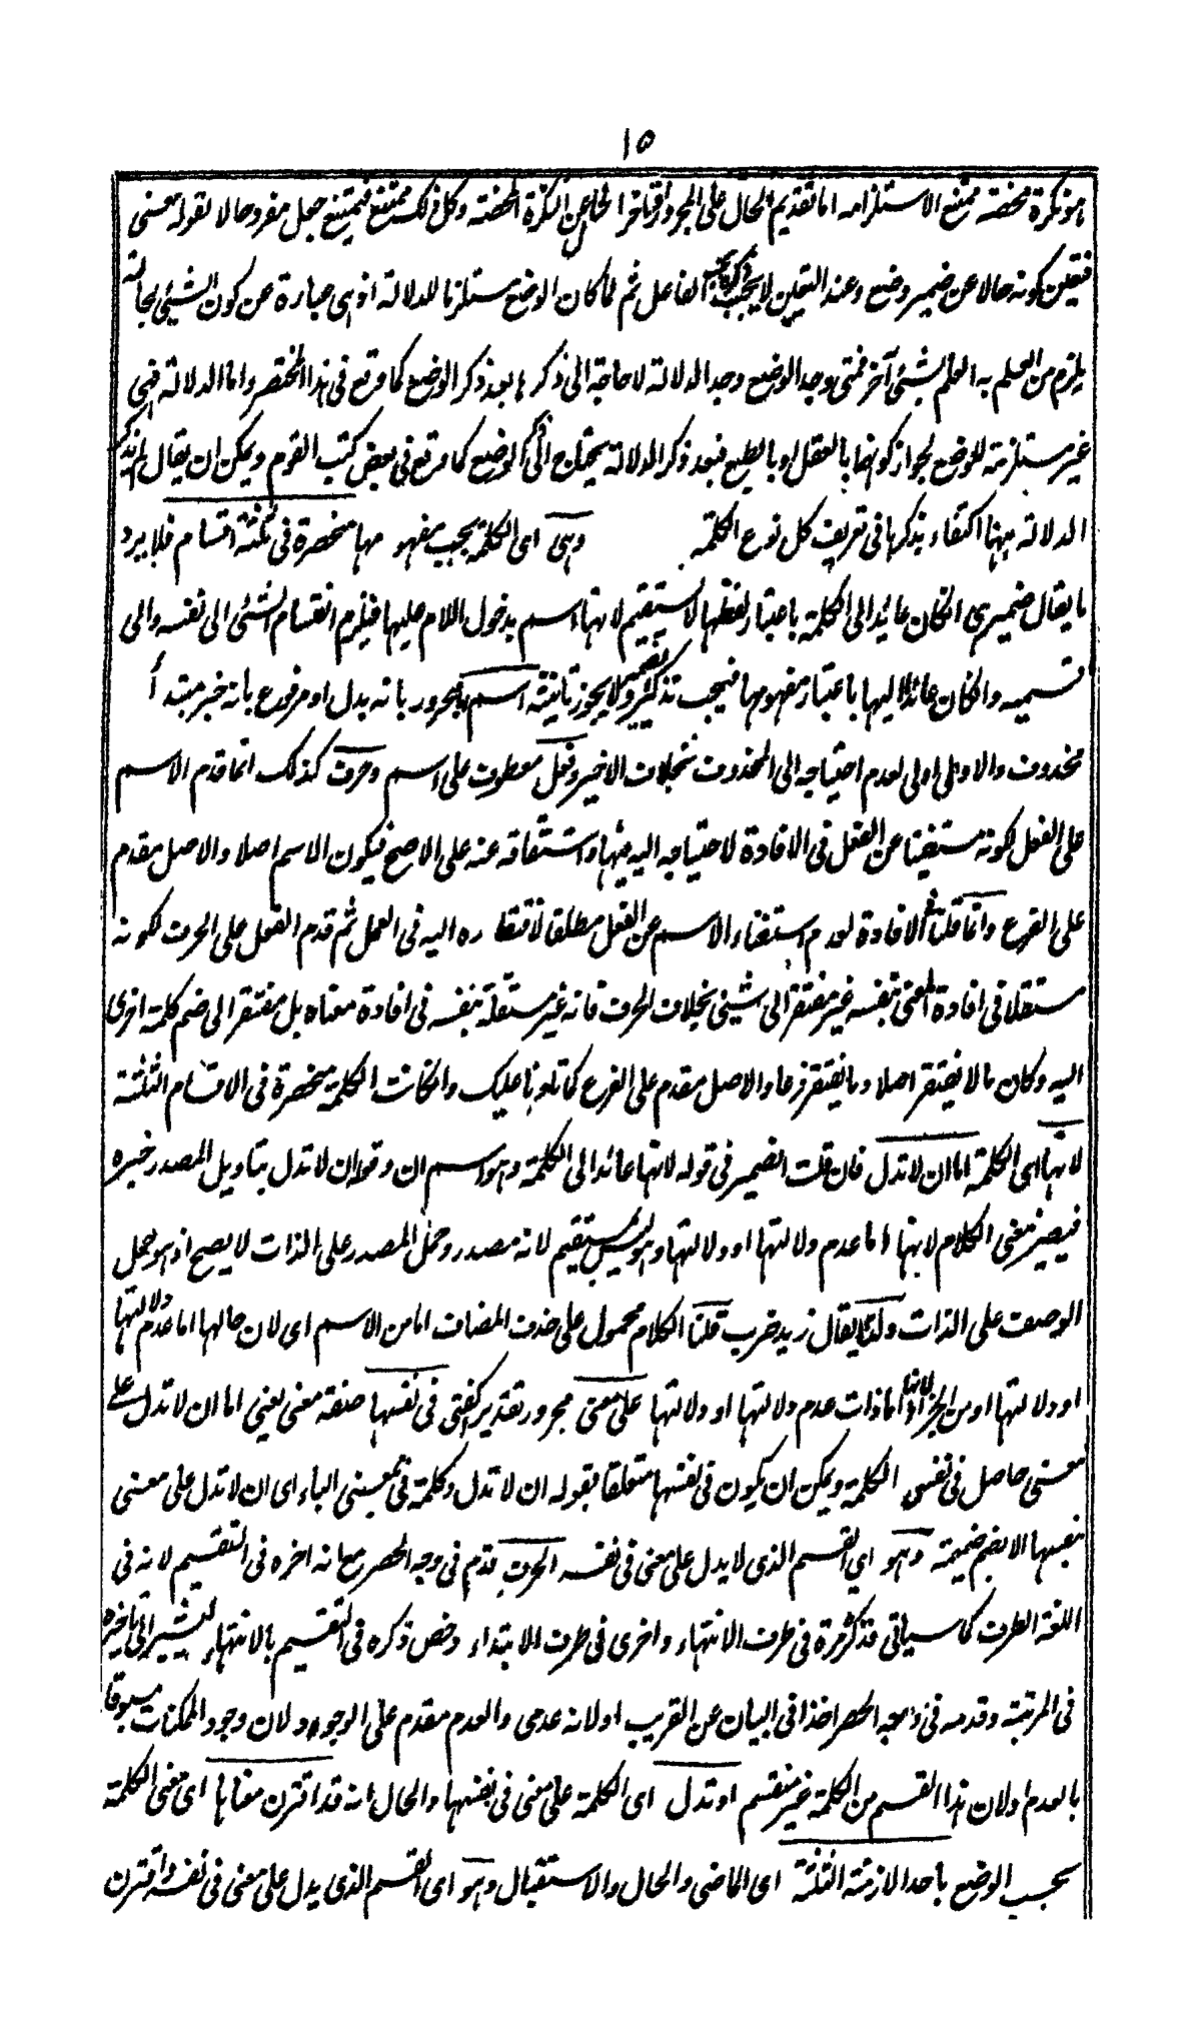 ١٥
هو نكرة محضة ممتنع الاستلزامه اما تقديم الحال على المجرور او تاخر الحال عن النكرة المحضة وكل ذلك ممتنع فيمتنع جعل مفرد حالا لقوله معنى
فتعين كونه حالا عن ضمير وضع وعند التعين لا يجب الفاعل ثم لما كان الوضع مستلزما للدلالة اذ هى عبارة عن كون الشيئ بحالة
يلزم من العلم به العلم بشيئ آخر فمتى وجد الوضع وجد الدلالة لا حاجة الى ذكرها بعد ذكر الوضع كما وقع فى هذا المختصر واما الدلالة فهى
غير مستلزمة للوضع لجواز كونها بالعقل او بالطبع فبعد ذكر الدلالة يحتاج الى ذكر الوضع كما وقع فى بعض كتب القوم ويمكن ان يقال لم يذكر
الدلالة ههنا اكتفاء بذكرها فى تعريف كل نوع الكلمة وهى اى الكلمة بحسب مفهومها منحصرة فى ثلثة اقسام فلا يرد
ما يقال ضمير هى انكان عائدا الى الكلمة باعتبار لفظها لا يستقيم لانها اسم بدخول اللام عليها فيلزم انقسام الشئ الى نفسه والى
قسيمه وانكان عائدا اليها باعتبار مفهومها فيجب تذكير الضمير ولا يجوز تانيثه اسم بالمجرور بانه بدل او مرفوع بانه خبر مبتدأ
محذوف والاولى اولى لعدم احتياجه الى المحذوف بخلاف الاخير وفعل معطوف على اسم وحرف كذلك انما قدم الاسم
على الفعل لكونه مستغنيا عن الفعل فى الافادة لاحتياجه اليه فيها واشتقاقه عنه على الاصح فيكون الاسم اصلا والاصل مقدم
على الفرع وانما قلنا فى الافادة لعدم استغناء الاسم عن الفعل مطلقا لافتقاره اليه فى العمل ثم قدم الفعل على الحرف لكونه
مستقلا فى افادة المعنى بنفسه غير مفتقر الى شيئ بخلاف الحرف فانه غير مستقلة بنفسه فى افادة معناه بل مفتقر الى ضم كلمة اخرى
اليه وكان ما لا يفتقر اصلا وما يفتقر فرعا والاصل مقدم على الفرع كما تلونا عليك وانكانت الكلمة منحصرة فى الاقسام الثلثة
لانها اى الكلمة اما ان لا تدل فان قلت الضمير فى قوله لانها عائد الى الكلمة وهو اسم ان وقوله ان لا تدل بتاويل المصدر خبره
فيصير معنى الكلام لانها اما عدم دلالتها او دلالتها وهو ليس بمستقيم لانه مصدر وحمل المصدر على الذات لا يصح اذ هو حمل
الوصف على الذات ولهذا لا يقال زيد ضرب قلنا الكلام محمول على حذف المضاف اما من الاسم اى لان حالها اما عدم دلالتها
او دلالتها او من الخبر اى لانها اما ذات عدم دلالتها او دلالتها على معنى مجرور تقدير كفتى فى نفسها صفة معنى يعنى اما ان لا تدل على
معنى حاصل فى نفس الكلمة ويمكن ان يكون فى نفسها متعلقا بقوله ان لا تدل وكلمة فى بمعنى الباء اى ان لا تدل على معنى
بنفسها الا بضم ضميمة وهو اي القسم الذى لا يدل على معنى فى نفسه الحرف قدم فى وجه الحصر مع انه اخره فى التقسيم لانه فى
اللغة الطرف كما سياتى فذكر مرة فى طرف الانتهاء واخرى فى طرف الابتداء وخص ذكره فى التقسيم بالانتهاء ليشير الى تاخيره
فى المرتبة وقدمه فى وجه الحصر اخذا فى البيان عن القريب او لانه عدمى والعدم مقدم على الوجود ولان وجود الممكنات مسبوقا
بالعدم اولان هذا القسم من الكلمة غير منقسم او تدل اى الكلمة على معنى فى نفسها والحال انه قد اقترن معناها اى معنى الكلمة
بحسب الوضع باحد الازمنة الثلثة اى الماضى والحال والاستقبال وهو اى القسم الذى يدل على معنى فى نفسه واقترن